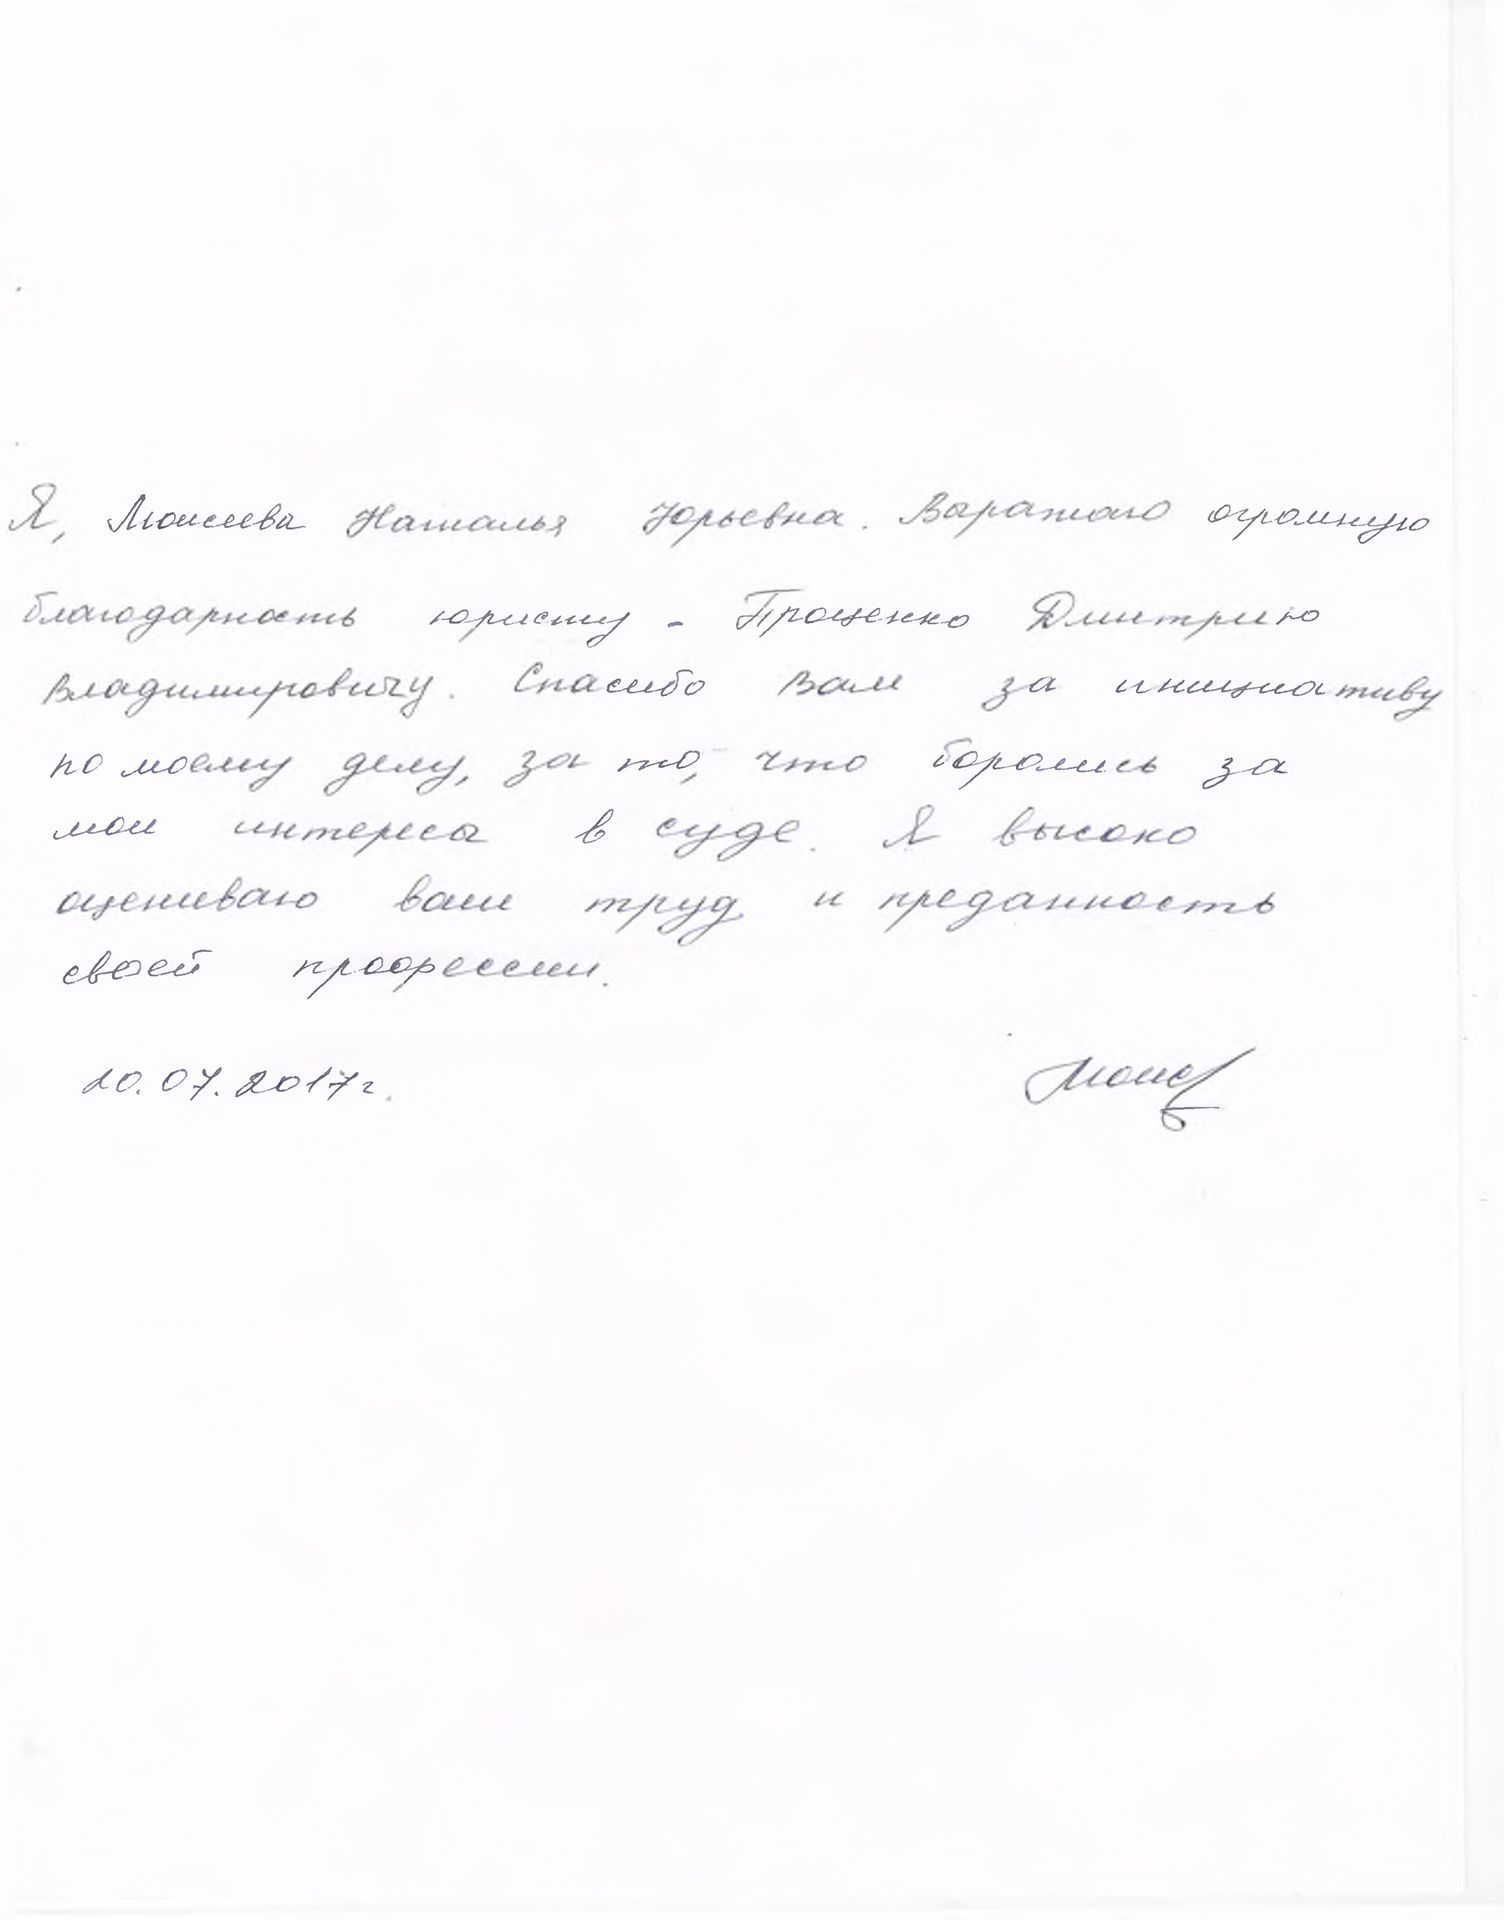 Я, Моисеева Наталья Юрьевна. Варатаю огромную
благодарность юристу - Проценко Дмитрию
Владимировичу. Спасибо Вам за инициативу
по моему делу, за то, что боролись за
мои интересы в суде. Я высоко
оцениваю ваш труд и преданность
своей профессии.
20.07.2017г.
Моис